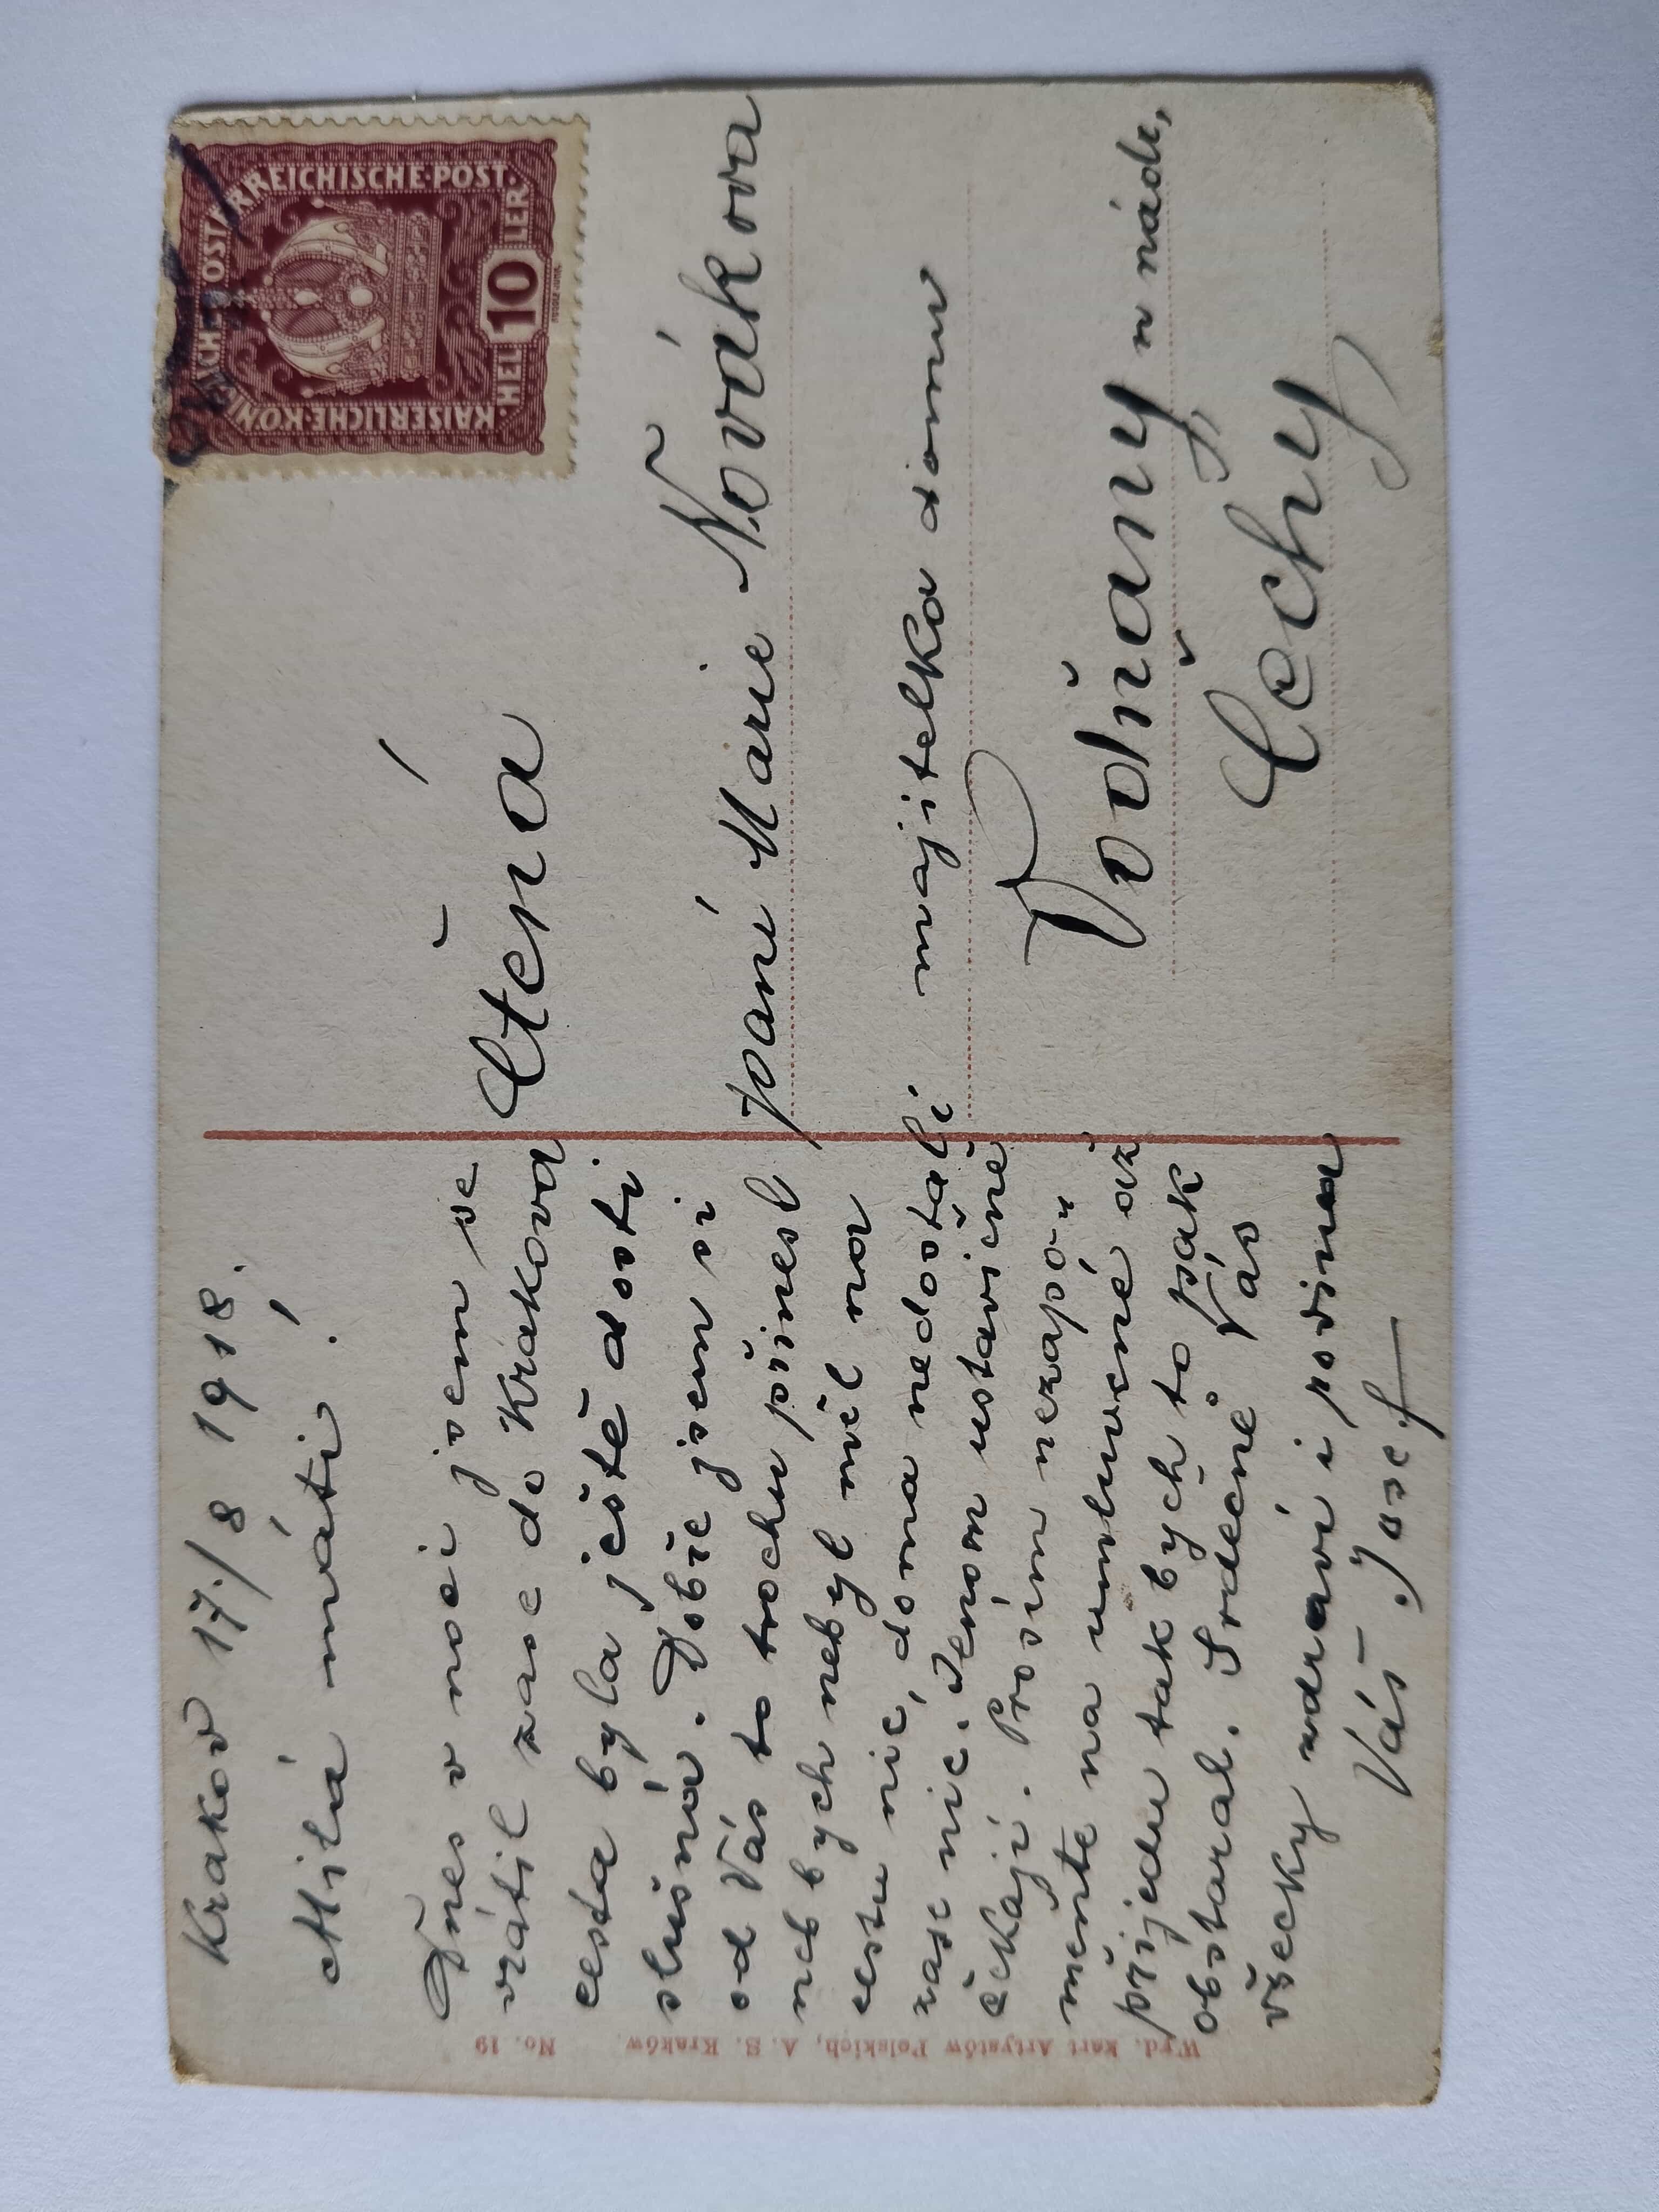 Krakov 17./8 1918.
Milá máti!
Dnes v noci jsem se
vrátil zase do Krakova
cesta byla ještě dosti
slušná. Dobře jsem si
od Vás to trochu přinesl
neb bych nebyl měl na
cestu nic, doma nedostali
zase nic. Jenom ustavičně
čekají. Prosím nezapo-
meňte na umluvené až
přijedu tak bych to pak
obstaral. Srdečně Vás
všecky zdraví i rodina
Váš Josef
Wyd. kart Artystów Polskich, A. S. Kraków. No. 19
KAISERLICHE·KÖNIGLICHE·ÖSTERREICHISCHE·POST·
HEL 10 LER
Ctěná
paní Marie Nováková
majitelka domu
Vodňany u nádr,
Čechy